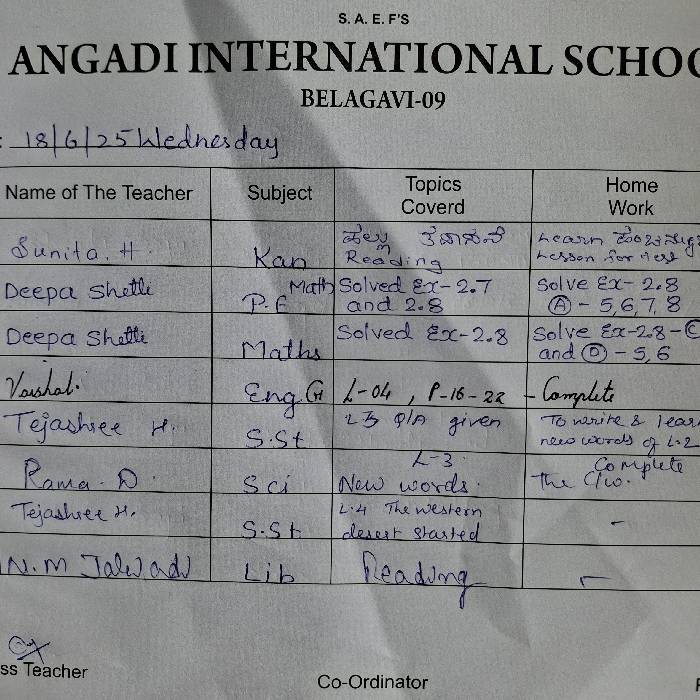 S. A. E. F'S
ANGADI INTERNATIONAL SCHOO
BELAGAVI-09
: 18/6/25 Wednesday
Name of The Teacher Subject Topics Coverd Home Work
Sunita. H. Kan Reading Learn Lesson for
Deepa Shetti Math P.E Solved Ex-2.7 and 2.8 Solve Ex-2.8 Ⓐ-5,6,7,8
Deepa Shetti Maths Solved Ex-2.8 Solve Ex-2.8-Ⓒ and Ⓓ-5,6
Vaishal. Eng G L-04, P-16-22 - Complete
Tejashree H. S.St L3 Q/A given To write & lear new words of L.2
Rama. D. Sci L-3. New words. Complete The C/w.
Tejashree H. S.St L.4 The western desert started -
N.M Jalwadi Lib Reading -
ss Teacher
Co-Ordinator